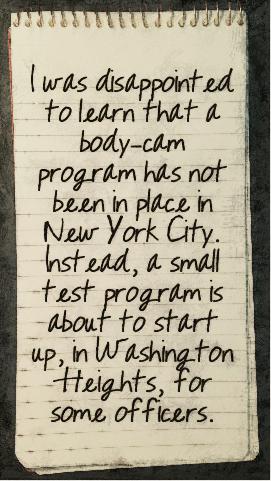 I was disappointed
to learn that a
body-cam
program has not
been in place in
New York City.
Instead, a small
test program is
about to start
up, in Washington
Heights, for
some officers.